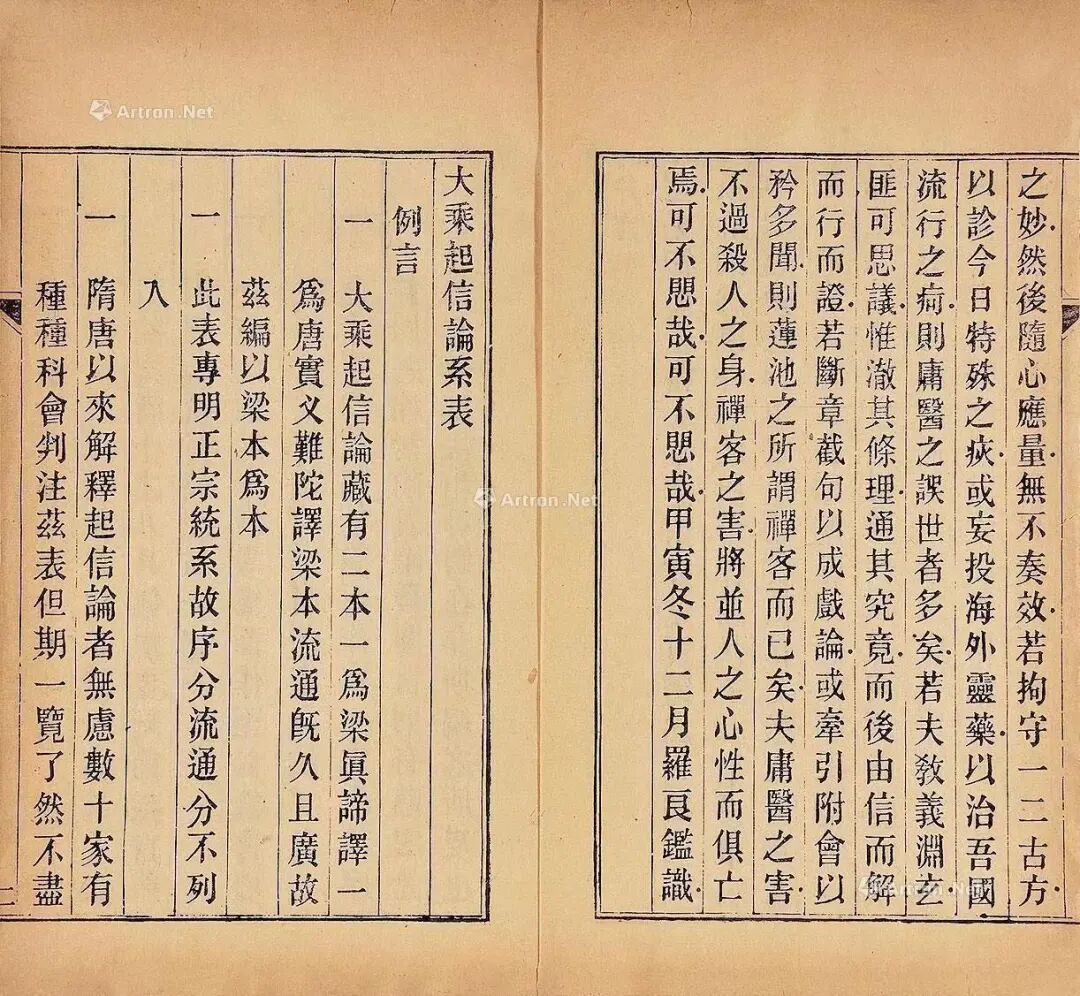 之妙然後隨心應量無不奏效若拘守一二古方
以診今日特殊之疾或妄投海外靈藥以治吾國
流行之疴則庸醫之誤世者多矣若夫教義淵玄
匪可思議惟澈其條理通其究竟而後由信而解
而行而證若斷章截句以成戲論或牽引附會以
矜多聞則蓮池之所謂禪客而已矣夫庸醫之害
不過殺人之身禪客之害將並人之心性而俱亡
焉可不思哉可不思哉甲寅冬十二月羅良鑑識
大乘起信論系表
例言
一 大乘起信論藏有二本一爲梁眞諦譯一
爲唐實叉難陀譯梁本流通旣久且廣故
茲編以梁本爲本
一 此表專明正宗統系故序分流通分不列
入
一 隋唐以來解釋起信論者無慮數十家有
種種科會判注茲表但期一覽了然不盡
Artron.Net
Artron.Net
Artron.Net